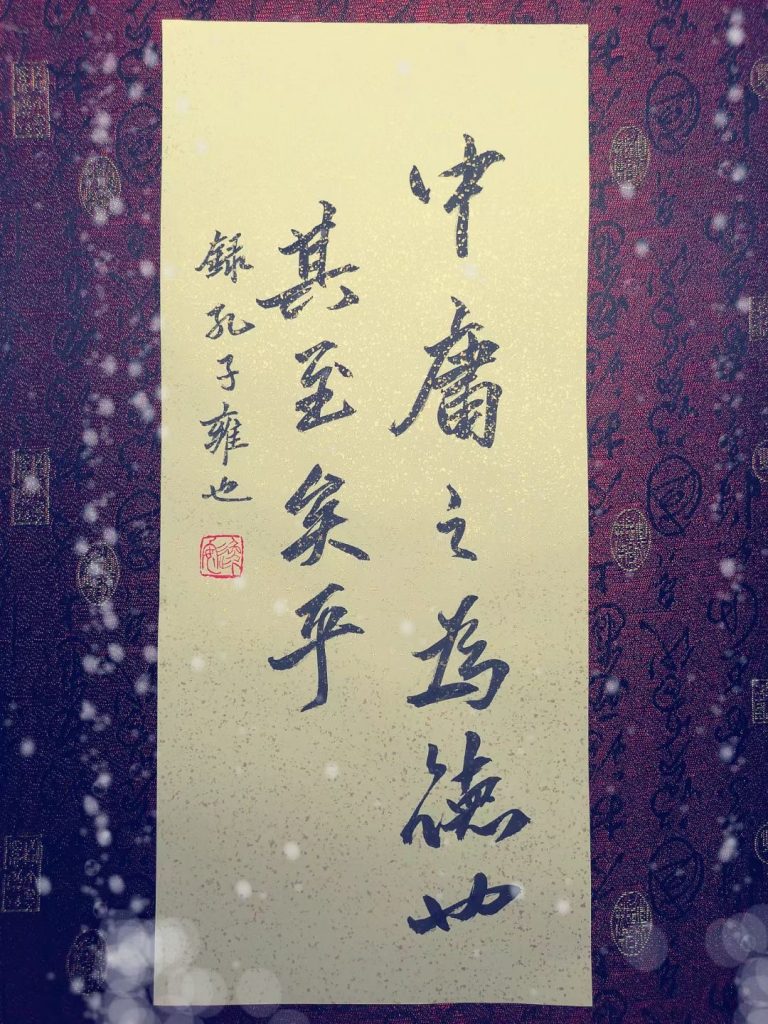 中庸之為德也
其至矣乎
錄孔子雍也